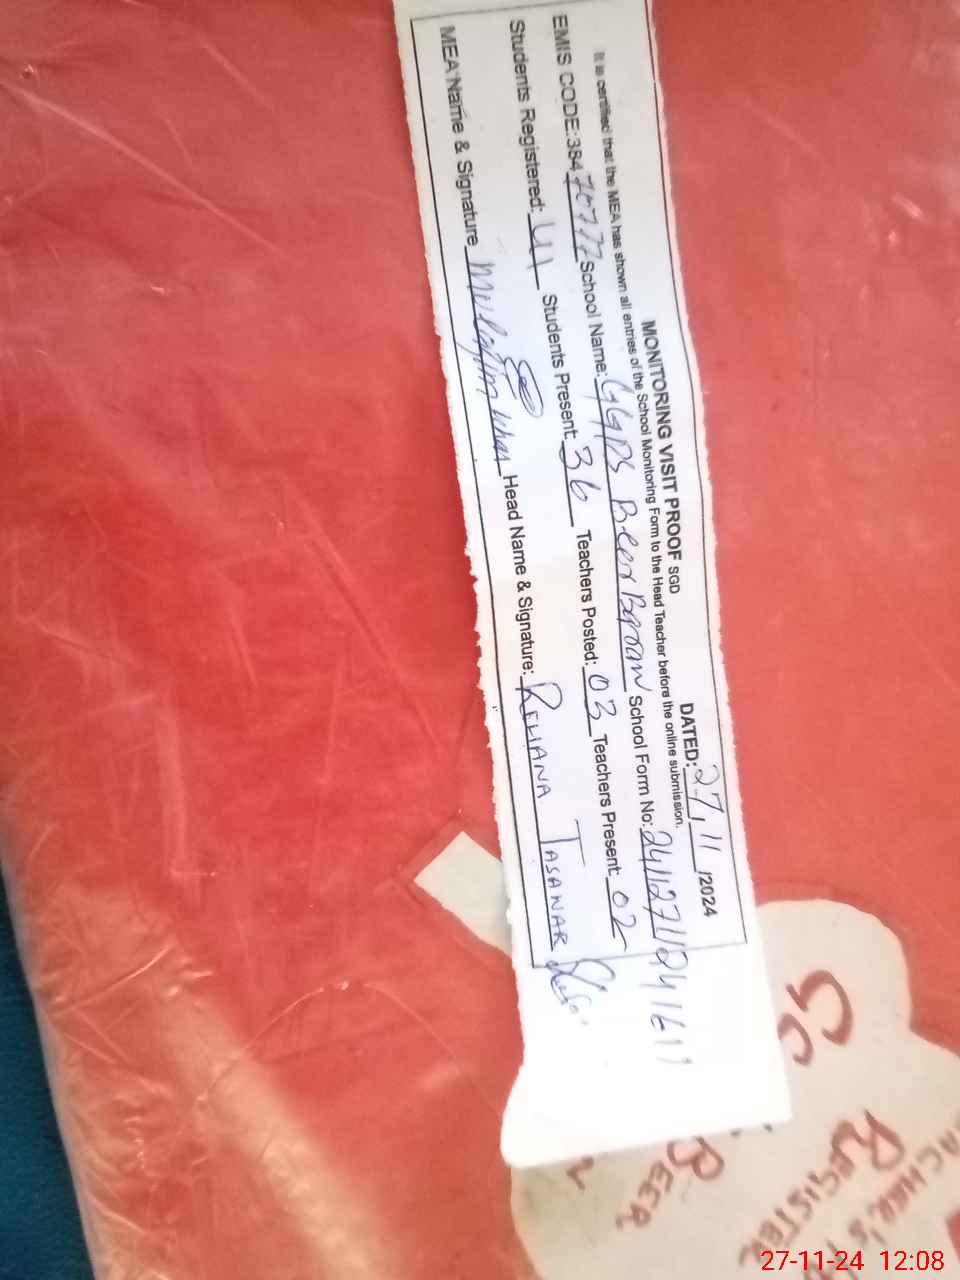 MONITORING VISIT PROOF SGD DATED: 27, 11 /2024
It is certified that the MEA has shown all entries of the School Monitoring Form to the Head Teacher before the online submission.
EMIS CODE:384 70777 School Name: GGPS Beer Baran School Form No: 24112711241611
Students Registered: 41 Students Present: 36 Teachers Posted: 03 Teachers Present: 02
MEA Name & Signature Head Name & Signature: REHANA TASAWAR
BEER
TEACHER'S
REGISTER
27-11-24 12:08